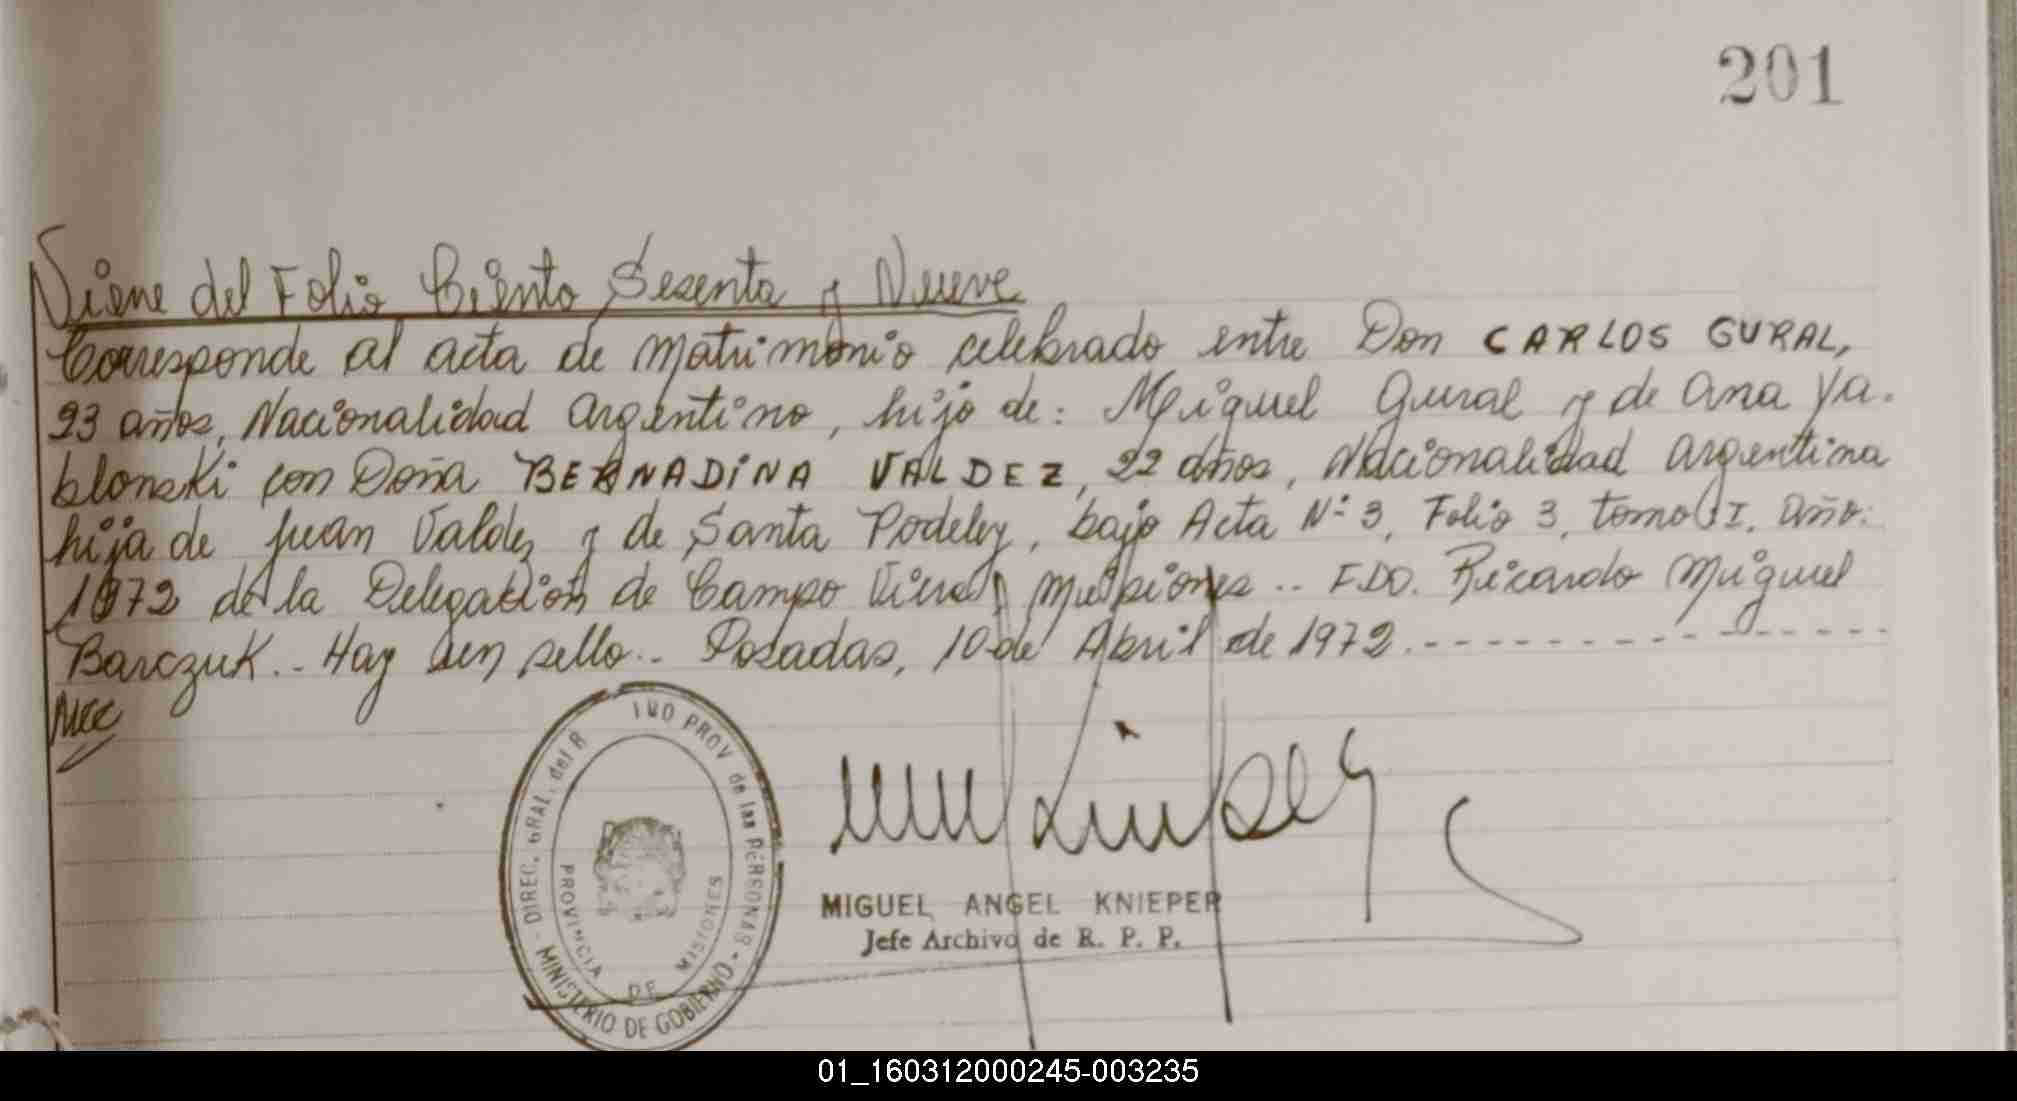 201
Viene del Folio Ciento Sesenta y Nueve
Corresponde al acta de Matrimonio celebrado entre Don CARLOS GURAL,
23 años, Nacionalidad Argentino, hijo de: Miguel Gural y de Ana Ya-
blonski con Doña BERNADINA VALDEZ, 22 años, Nacionalidad Argentina
hija de Juan Valdez y de Santa Podeley, bajo Acta Nº 3, Folio 3, tomo I. año:
1972 de la Delegación de Campo Viera, Misiones.. FDO. Ricardo Miguel
Barczuk.. Hay un sello.. Posadas, 10 de Abril de 1972.---------------
DIREC. GRAL. del R PROV de las PERSONAS
PROVINCIA DE MISIONES
- MINISTERIO DE GOBIERNO -
MIGUEL ANGEL KNIEPER
Jefe Archivo de R. P. P.
01_160312000245-003235